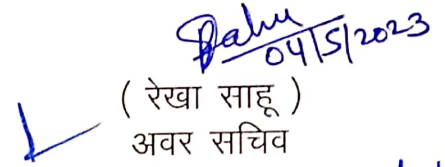 Sahu
04/5/2023
( रेखा साहू )
अवर सचिव